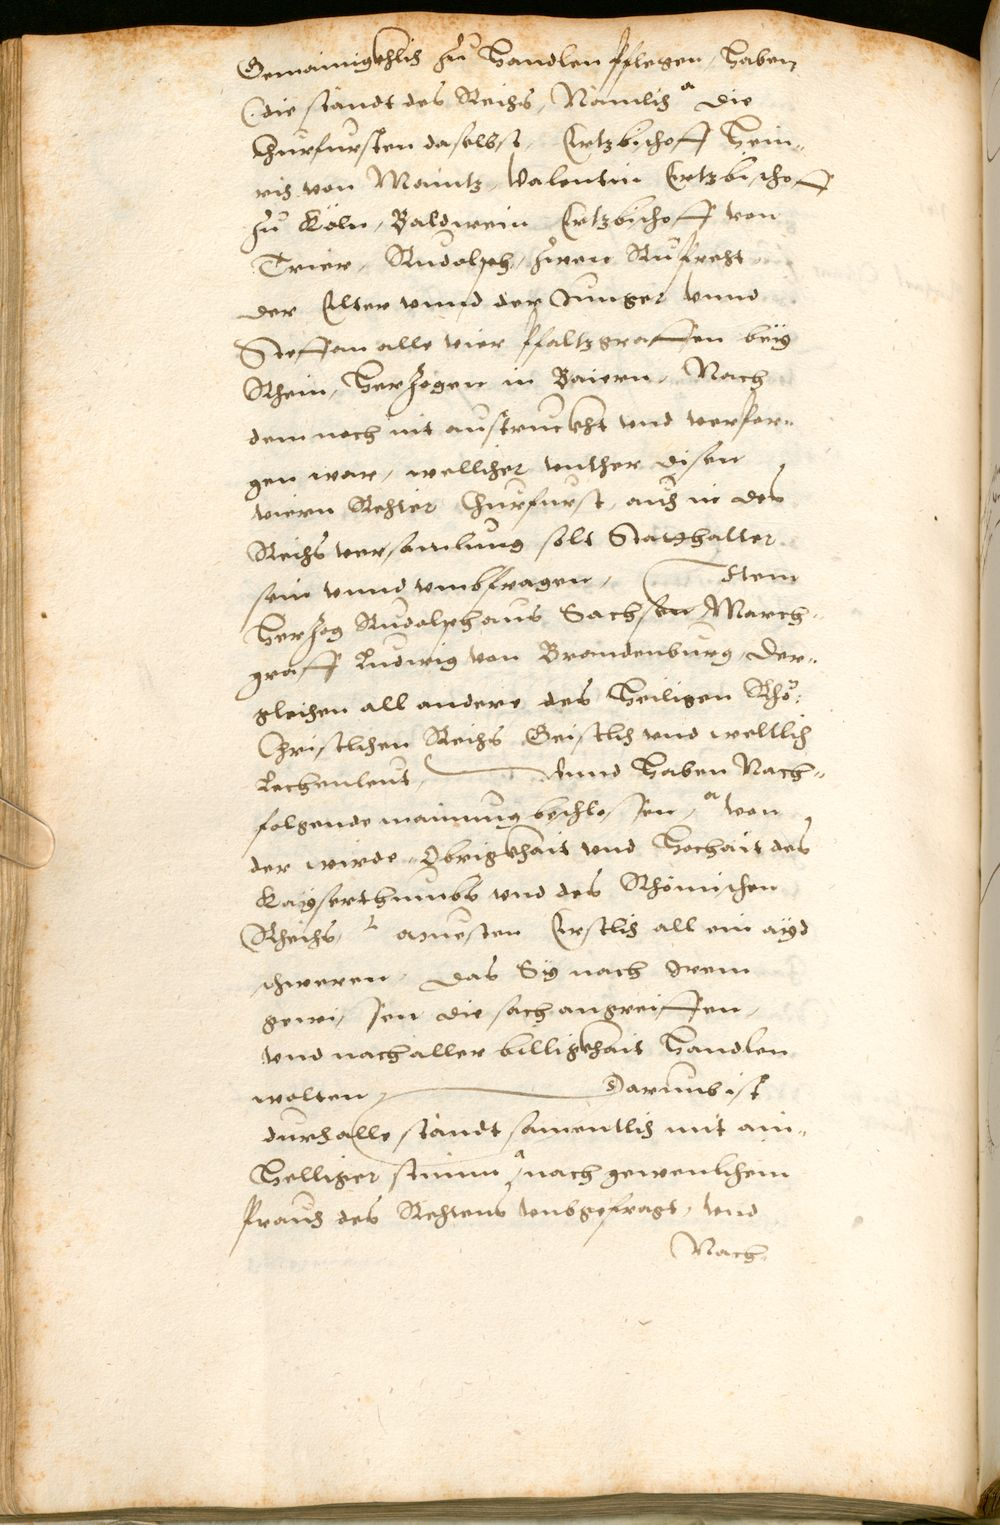 Gemainigkhlich zu Handlen pflegen, Haben
(die ständt des Reichs, Nämlich die
Churfursten daselbst, Ertzbischoff Hein-
rich von Maintz, Valentin Ertzbischoff
zu Köln, Baldwein Ertzbischoff von
Trier, Rudolph, zwen Ruprecht
der Elter vnnd der Junger vnnd
Steffan alle vier Pfaltzgraffen beÿ
Rhein, Herzogen in Baiern, Nach
dem noch nit austruckht vnd verfor-
gen war, wellicher vnther disen
viern Rechter Churfurst, auch in des
Reichs versamlung solt Stathalter
sein vnnd vmbfragen, Item
Herzog Rudolph aus Sachsen March-
graff Ludwig von Brandenburg, Der-
gleichen all andere des Heiligen Rhö:
Christlichen Reichs Geistlich vnd weltlich
Lechenleut, Vnnd Haben Nach-
folgende mainung beschlossen, von
der wirde Obrigkhait vnd Hochait des
Kaÿserthumbs vnd des Rhömischen
Rheichs, muesten Erstlich all ein aÿd
schweren, Das Sÿ nach Irem
gewissen die sach angreiffen,
vnd nach aller billigkhait Handlen
wolten, Darumb ist
durch alle ständt samentlich mit ain-
helliger stimm nach gewenlichem
prauch des Rechtens vmbgefragt, vnd
Nach-